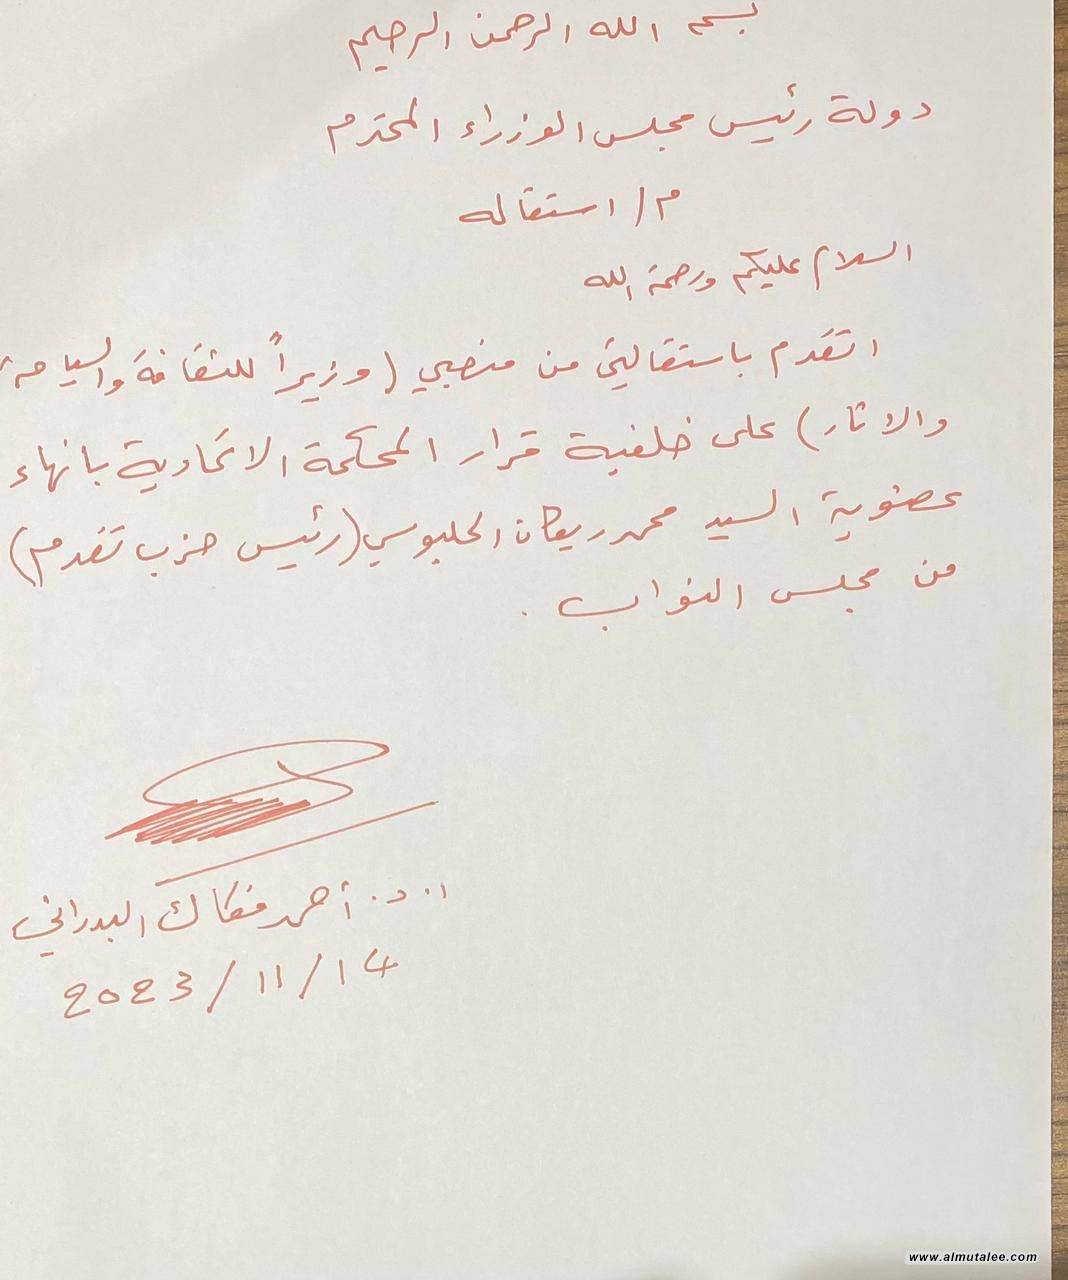 بسم الله الرحمن الرحيم
دولة رئيس مجلس الوزراء المحترم
م/ استقاله
السلام عليكم ورحمة الله
اتقدم باستقالتي من منصبي (وزيراً للثقافة والسياحة
والاثار) على خلفية قرار المحكمة الاتحادية بانهاء
عضوية السيد محمد ريكان الحلبوسي (رئيس حزب تقدم)
من مجلس النواب .
ا. د. أحمد فكاك البدراني
2023/11/14
www.almutalee.com